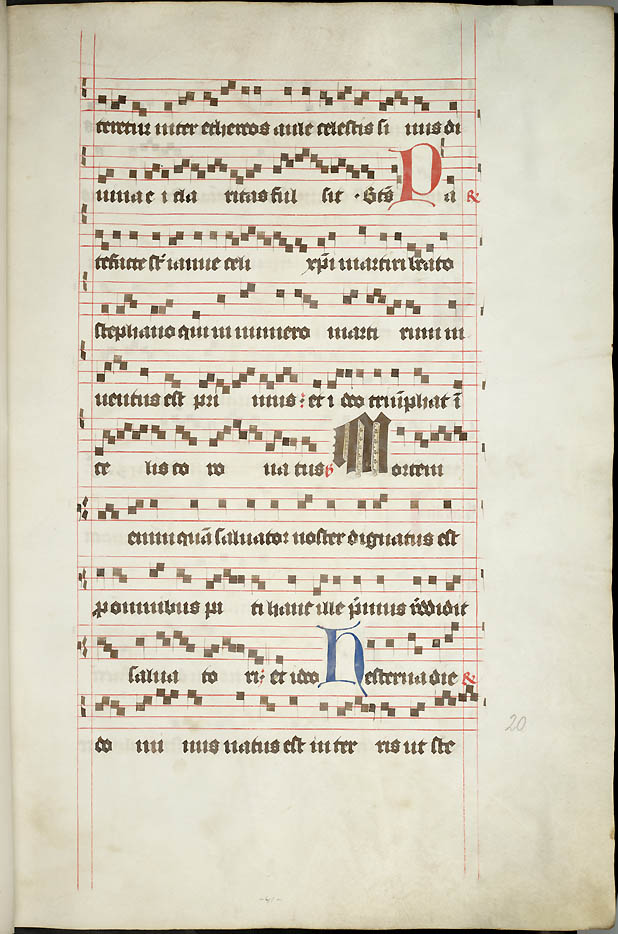 teretur inter ethereos aule celestis si nius di
uina e i cla ritas ful sit · Sts Pa ℟
tefacte st ianue celi xpi martiri beato
stephano qui in numero marti rum in
uentus est pri mus : et i deo triuphat i
ce lis co ro na tus ℣ Mortem
enim quā saluator noster dignatus est
p omnibus pa ti hanc ille pmus reddidit
salua to ri : et ideo Hesterna die ℟
do mi nus natus est in ter ris ut ste
20